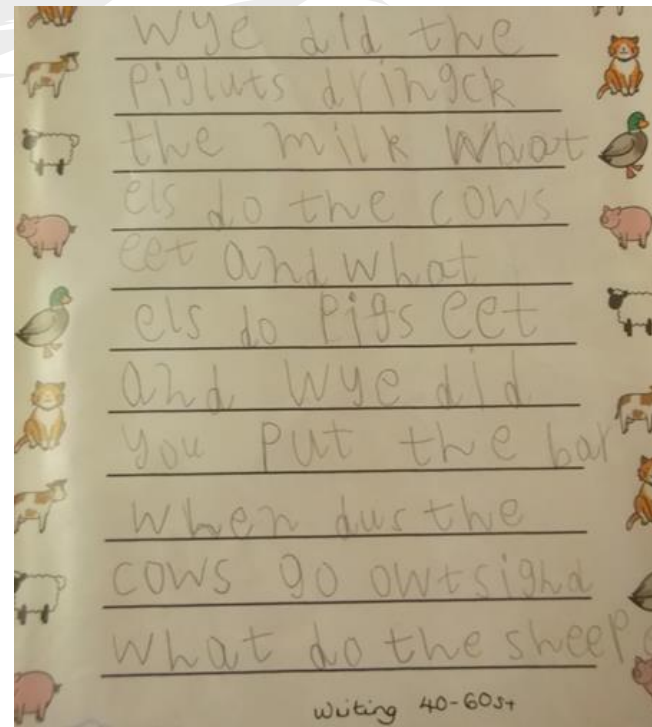 wye did the
pigluts dringck
the milk what
els do the cows
eet and what
els do pigs eet
and wye did
you put the bar
when dus the
cows go owtsighd
what do the sheep
writing 40-60s+